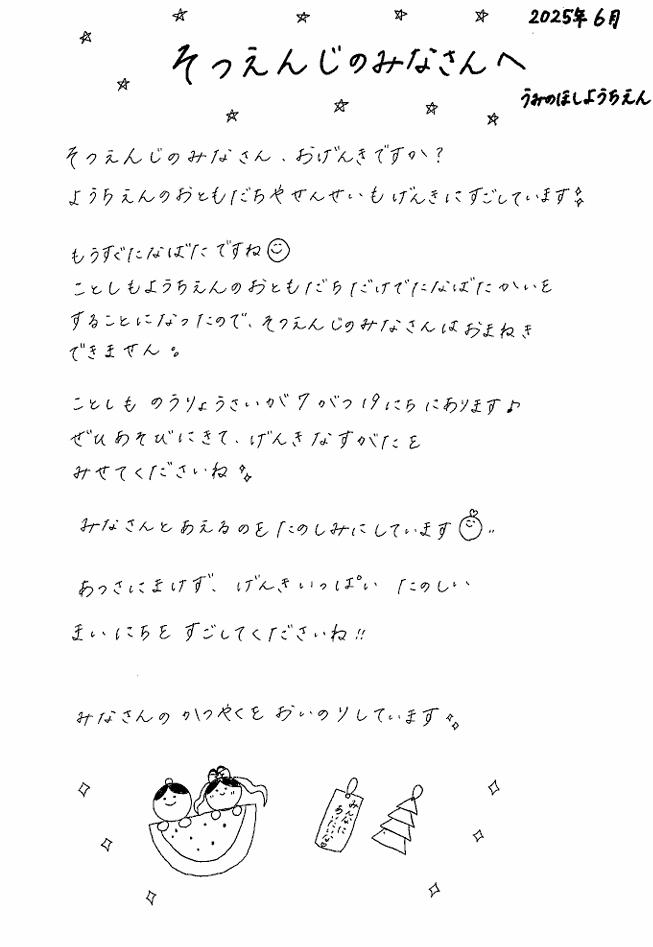 2025年6月
そつえんじのみなさんへ
うみのほしようちえん
そつえんじのみなさん、おげんきですか?
ようちえんのおともだちやせんせいもげんきにすごしています
もうすぐたなばたですね
ことしもようちえんのおともだちだけでたなばたかいを
することになったので、そつえんじのみなさんはおまねき
できません。
ことしも のうりょうさいが7がつ19にちにあります♪
ぜひあそびにきて、げんきなすがたを
みせてくださいね
みなさんとあえるのをたのしみにしています
あつさにまけず、げんきいっぱい たのしい
まいにちを すごしてくださいね!!
みなさんの かつやくを おいのりしています
みんなに
あいたいな